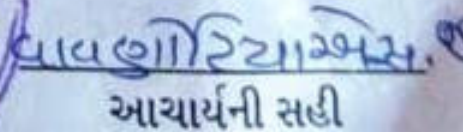 વાવણોરિયા એસ.
આચાર્યની સહી